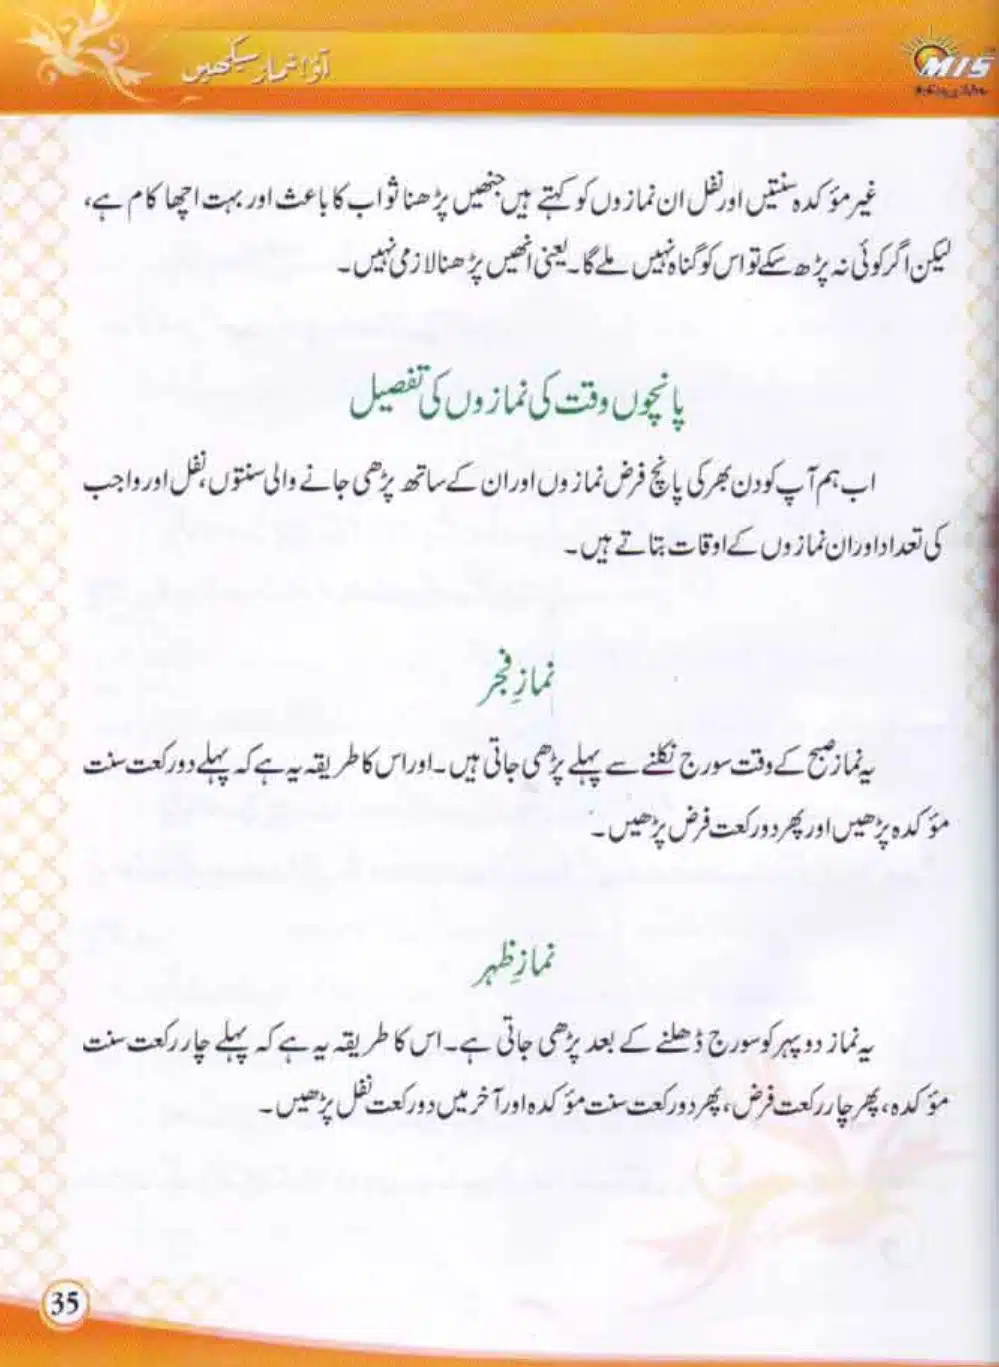 آؤ! نماز سیکھیں
MIS
غیر مؤکدہ سنتیں اور نفل ان نمازوں کو کہتے ہیں جنھیں پڑھنا ثواب کا باعث اور بہت اچھا کام ہے،
لیکن اگر کوئی نہ پڑھ سکے تو اس کو گناہ نہیں ملے گا۔ یعنی انھیں پڑھنا لازمی نہیں۔
پانچوں وقت کی نمازوں کی تفصیل
اب ہم آپ کو دن بھر کی پانچ فرض نمازوں اور ان کے ساتھ پڑھی جانے والی سنتوں، نفل اور واجب
کی تعداد اور ان نمازوں کے اوقات بتاتے ہیں۔
نمازِ فجر
یہ نماز صبح کے وقت سورج نکلنے سے پہلے پڑھی جاتی ہیں۔ اور اس کا طریقہ یہ ہے کہ پہلے دو رکعت سنت
مؤکدہ پڑھیں اور پھر دو رکعت فرض پڑھیں۔
نمازِ ظہر
یہ نماز دوپہر کو سورج ڈھلنے کے بعد پڑھی جاتی ہے۔ اس کا طریقہ یہ ہے کہ پہلے چار رکعت سنت
مؤکدہ، پھر چار رکعت فرض، پھر دو رکعت سنت مؤکدہ اور آخر میں دو رکعت نفل پڑھیں۔
35